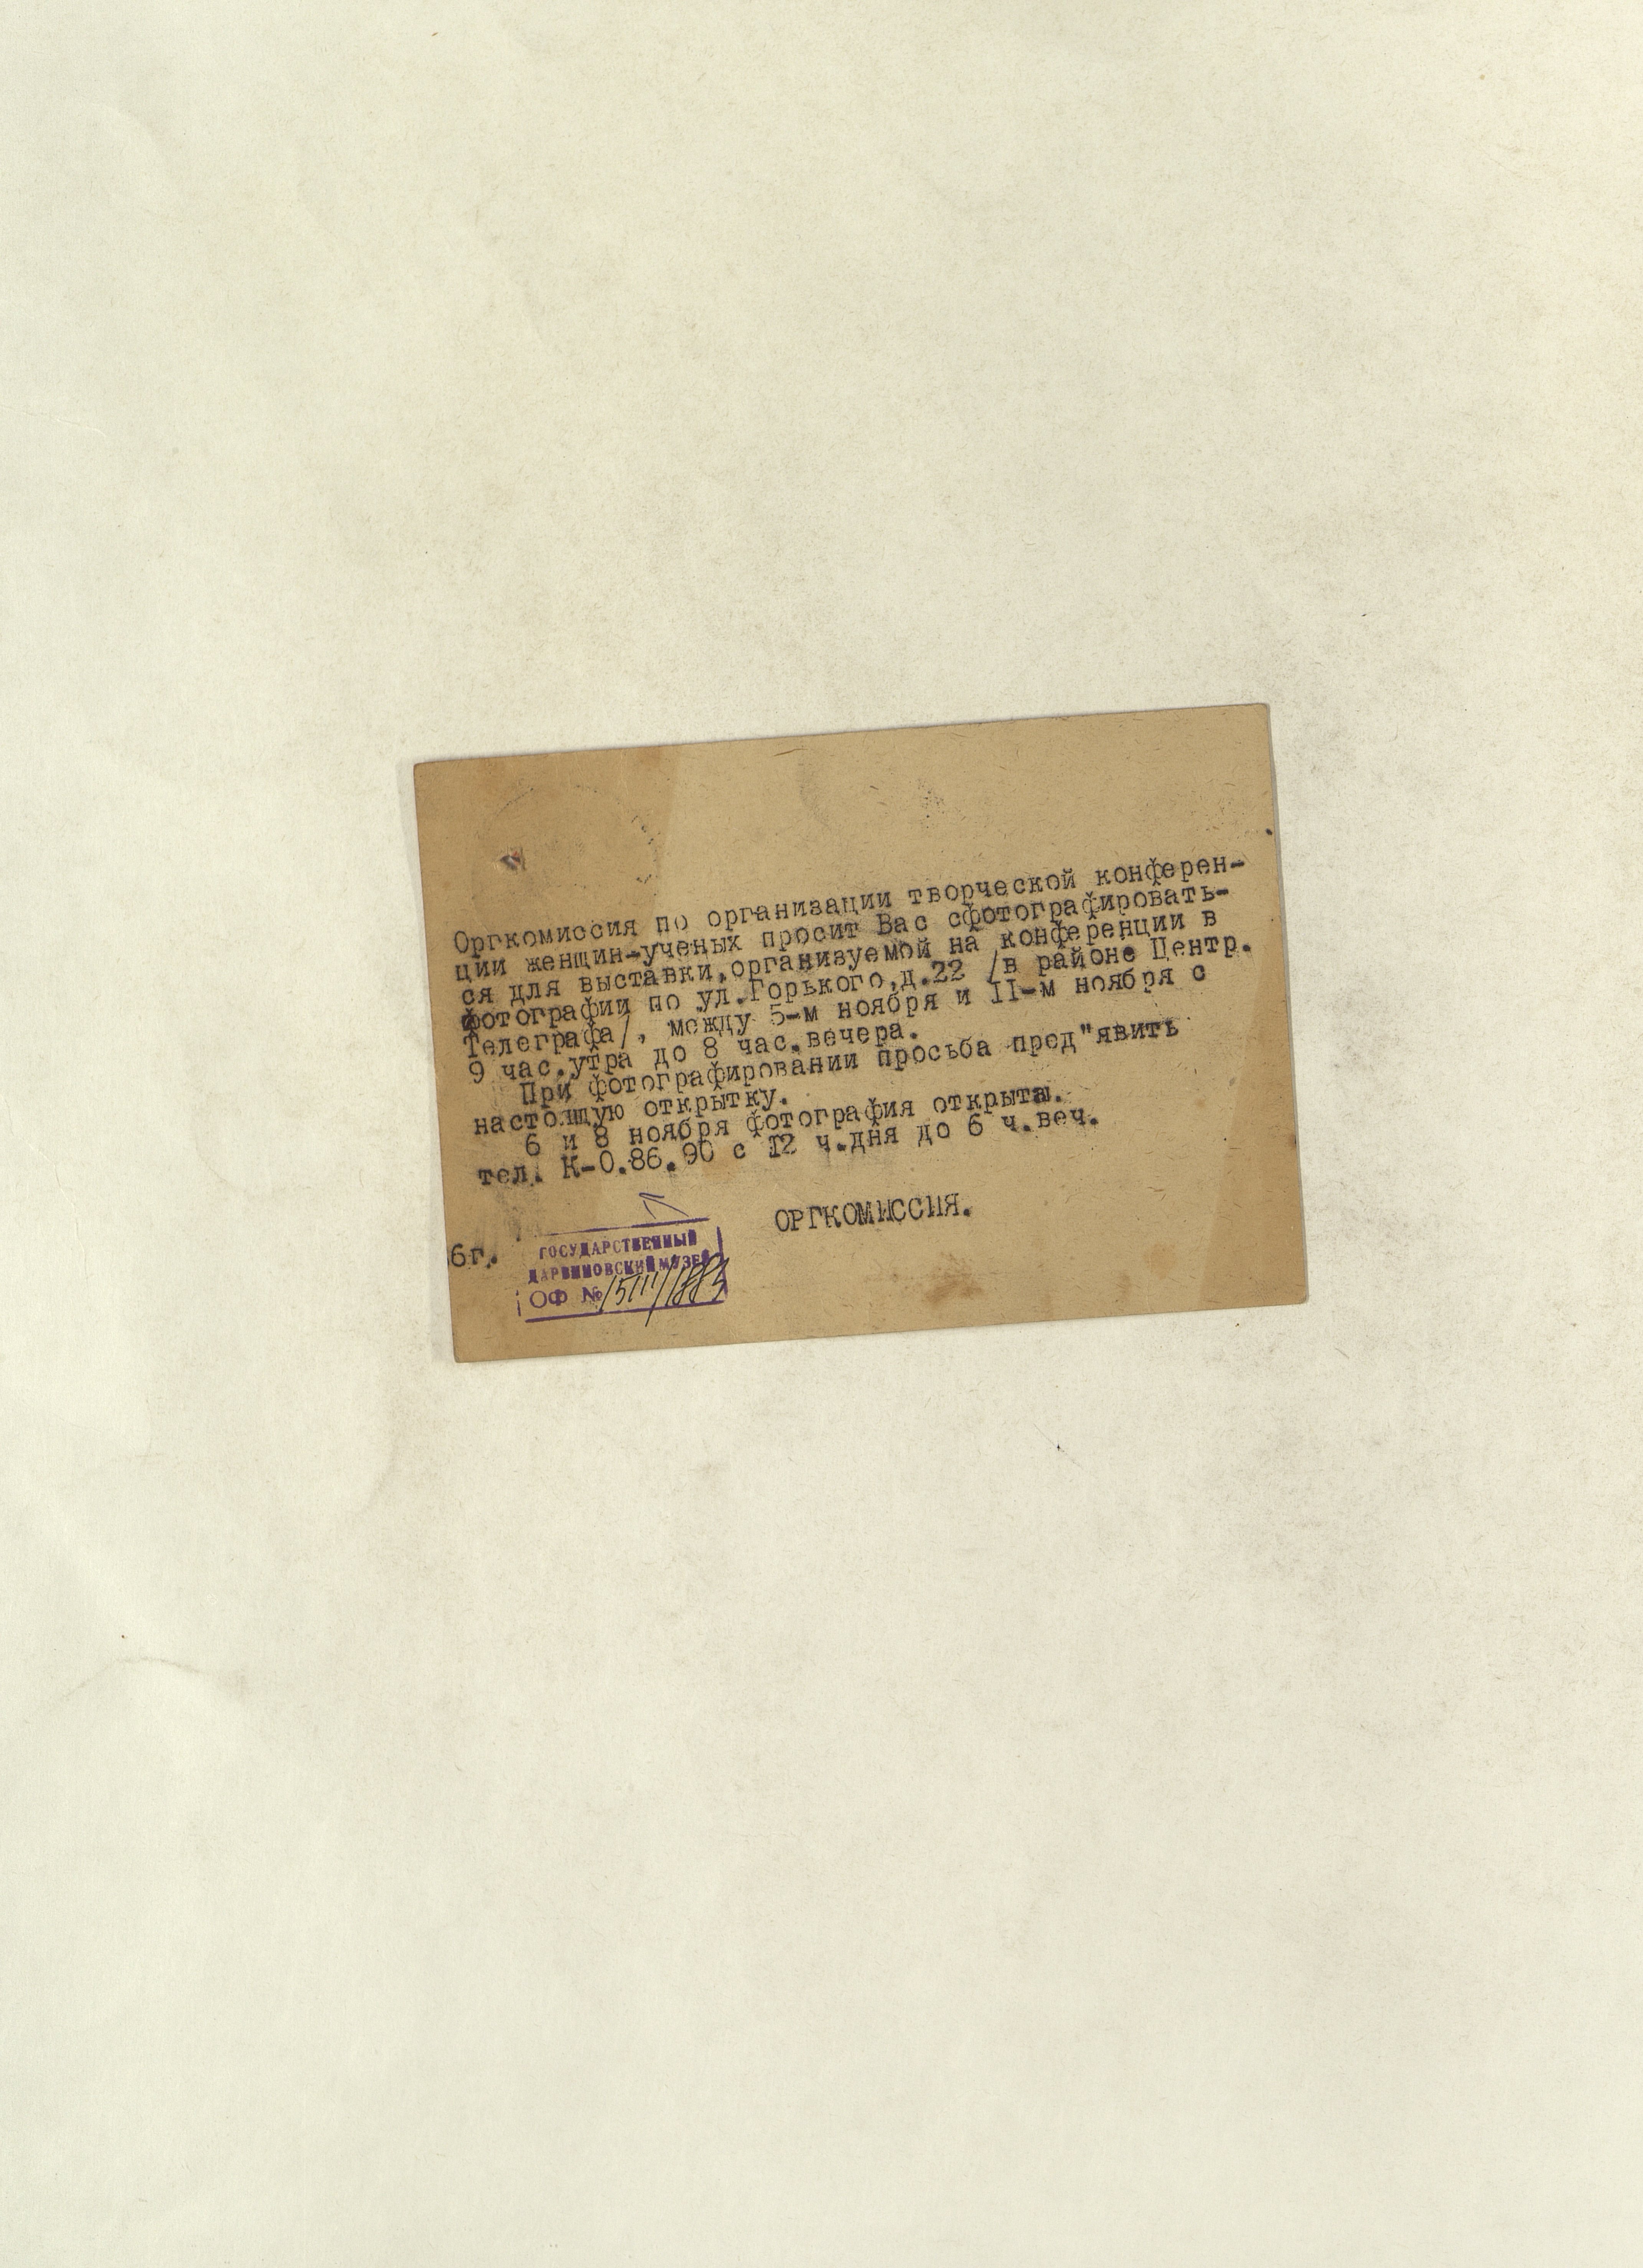 Оргкомиссия по организации творческой конферен-
ции женщин-ученых просит Вас сфотографировать-
ся для выставки,организуемой на конференции в
фотографии по ул.Горького,д.22 /в районе Центр.
Телеграфа/, между 5-м ноября и II-м ноября с
9 час.утра до 8 час.вечера.
При фотографировании просьба пред"явить
настоящую открытку.
6 и 8 ноября фотография открыта.
тел. К-0.86.90 с 12 ч.дня до 6 ч.веч.
ОРГКОМИССИЯ.
6г.
ГОСУДАРСТВЕННЫЙ
ДАРВИНОВСКИЙ МУЗЕЙ
ОФ №